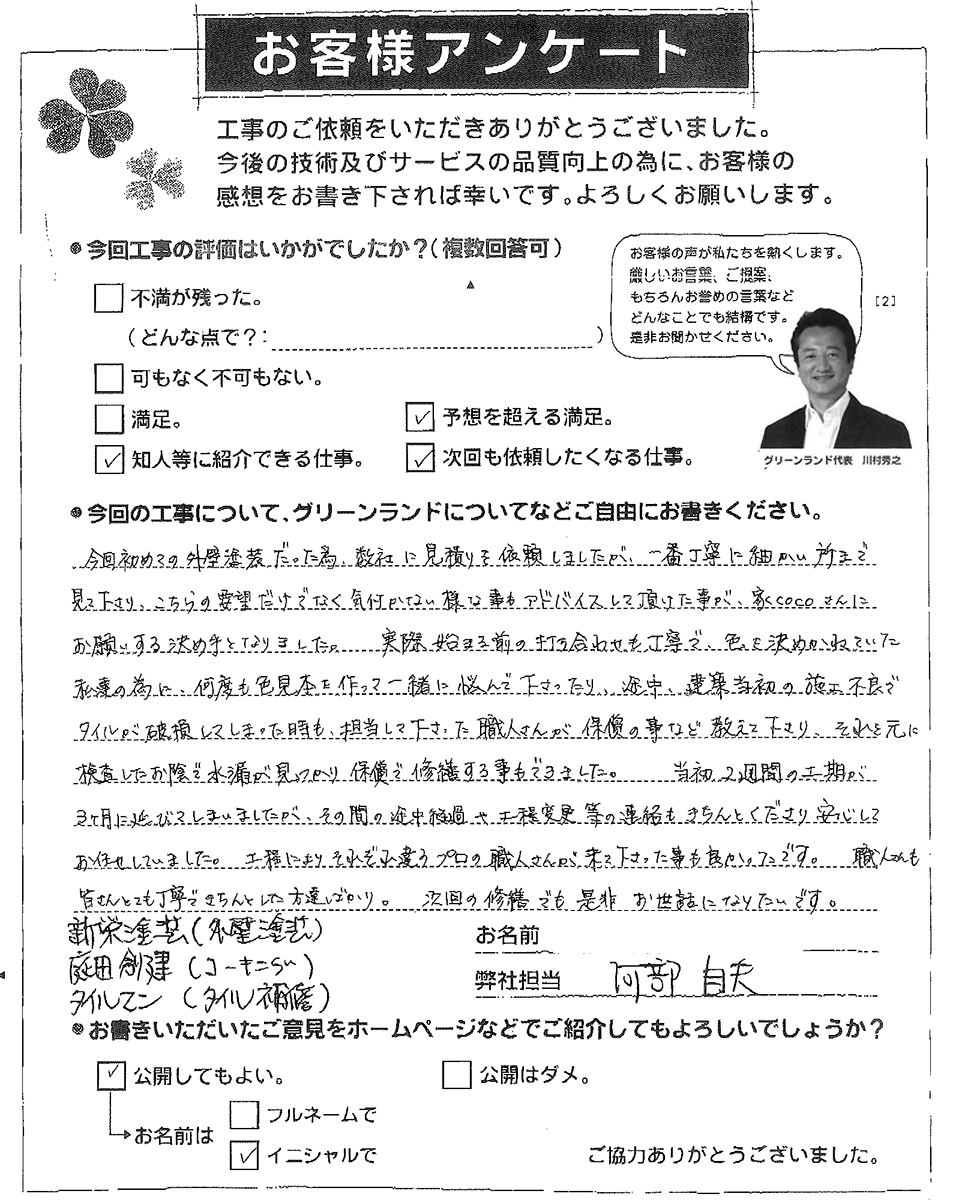 お客様アンケート
工事のご依頼をいただきありがとうございました。
今後の技術及びサービスの品質向上の為に、お客様の
感想をお書き下されば幸いです。よろしくお願いします。
今回工事の評価はいかがでしたか?(複数回答可)
お客様の声が私たちを熱くします。
厳しいお言葉、ご提案、
もちろんお誉めの言葉など
どんなことでも結構です。
是非お聞かせください。
[2]
不満が残った。
(どんな点で?: )
可もなく不可もない。
満足。
✓ 予想を超える満足。
✓ 知人等に紹介できる仕事。
✓ 次回も依頼したくなる仕事。
グリーンランド代表 川村秀之
今回の工事について、グリーンランドについてなどご自由にお書きください。
今回初めての外壁塗装だった為、数社に見積りを依頼しましたが、一番丁寧に細かい所まで
見て下さり、こちらの要望だけでなく気付かない様な事もアドバイスして頂けた事が、家cocoさんに
お願いする決め手となりました。 実際始まる前の打ち合わせも丁寧で、色を決めかねていた
私達の為に、何度も色見本を作って一緒に悩んで下さったり、途中、建築当初の施工不良で
タイルが破損してしまった時も、担当して下さった職人さんが保償の事など教えて下さり、それを元に
検査したお陰で水漏が見つかり保償で修繕する事もできました。 当初2週間の工期が
3ヶ月に延びてしまいましたが、その間の途中経過や工程変更等の連絡もきちんとくださり安心して
お任せしていました。 工程によりそれぞれ違うプロの職人さんが来て下さった事も良かったです。 職人さんも
皆さんとても丁寧できちんとした方達ばかり。 次回の修繕でも是非お世話になりたいです。
新栄塗装(外壁塗装)
庭田創建(コーキング)
タイルマン(タイル補修)
お名前
弊社担当 阿部
お書きいただいたご意見をホームページなどでご紹介してもよろしいでしょうか?
✓ 公開してもよい。
公開はダメ。
お名前は
フルネームで
✓ イニシャルで
ご協力ありがとうございました。